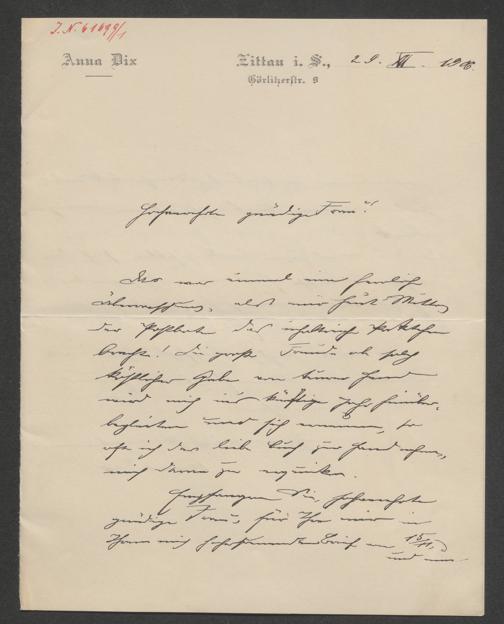 J. N. 61699/1
Anna Dix
Zittau i. S., 29. XII. 1906.
Görlitzerstr. 9
Hochverehrte gnädige Frau!
Das war einmal eine herrliche
Überraschung, als mir heut Mittag
der Postbote das inhaltreiche Päckchen
brachte! Die große Freude ob solch
köstlicher Gabe von teurer Hand
wird mich ins künftige Jahr hinüber-
begleiten und sich erneuern, so
oft ich das liebe Buch zur Hand nehme,
mich daran zu erquicken.
Empfangen Sie, hochverehrte
gnädige Frau, für Ihren mir in
Brief am 15/11.,
und